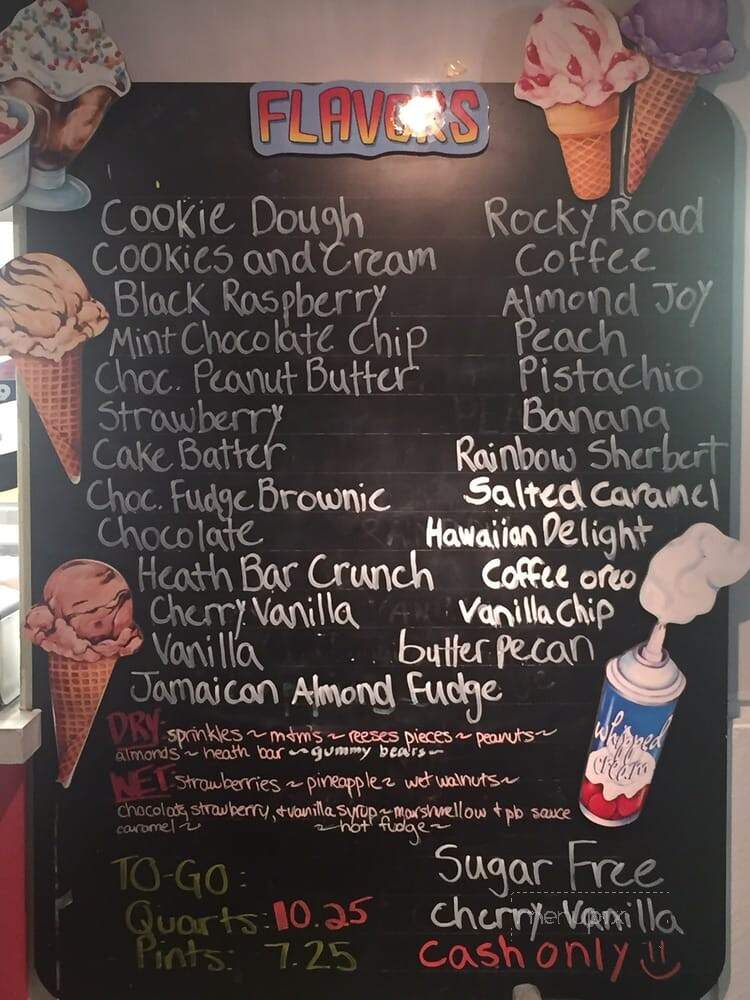 FLAVORS
Cookie Dough
Cookies and Cream
Black Raspberry
Mint Chocolate Chip
Choc. Peanut Butter
Strawberry
Cake Batter
Choc. Fudge Brownie
Chocolate
Heath Bar Crunch
Cherry Vanilla
Vanilla
Jamaican Almond Fudge
Rocky Road
Coffee
Almond Joy
Peach
Pistachio
Banana
Rainbow Sherbert
Salted Caramel
Hawaiian Delight
Coffee oreo
Vanilla Chip
butter pecan
DRY: sprinkles ~ m+m's ~ reeses pieces ~ peanuts ~
almonds ~ heath bar ~ gummy bears ~
WET: Strawberries ~ pineapple ~ wet walnuts ~
chocolate, strawberry, + vanilla syrup ~ marshmellow + pb sauce
caramel ~ ~ hot fudge ~
whipped
cream
TO-GO:
Quarts: 10.25
Pints: 7.25
Sugar Free
Cherry Vanilla
menupix
Cash only